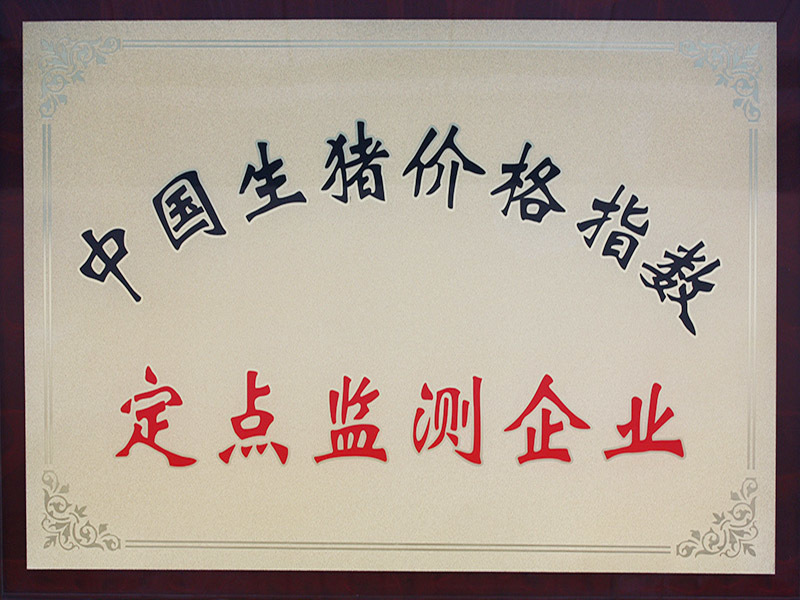 中国生猪价格指数
定点监测企业